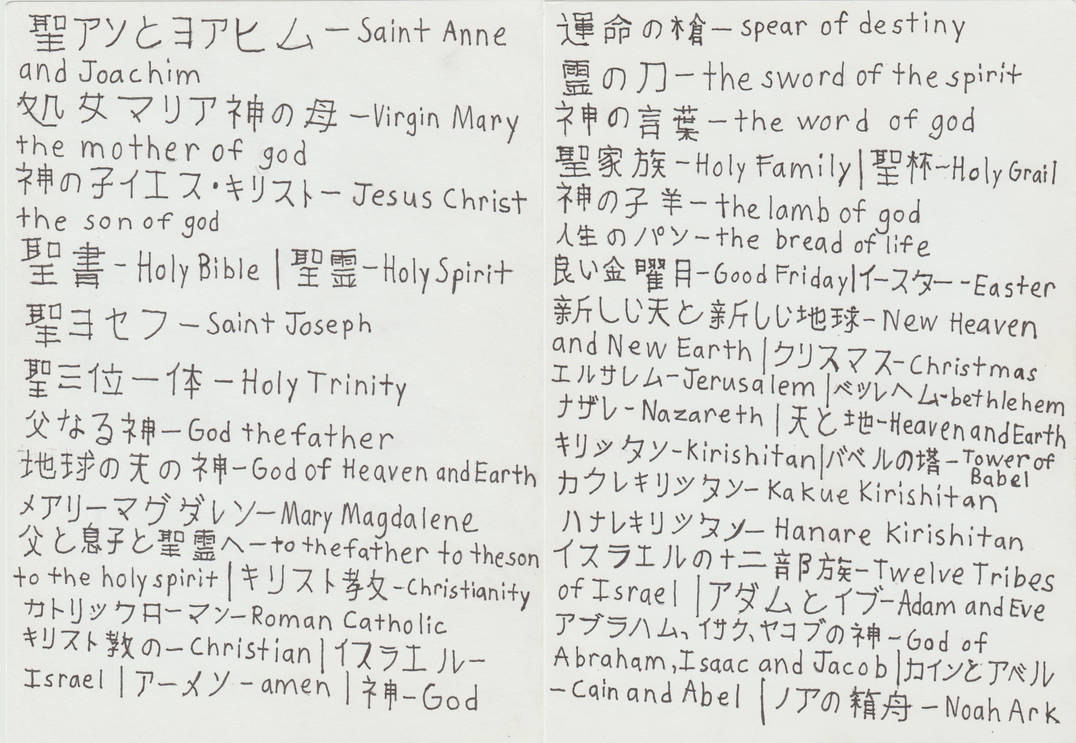 聖アソとヨアヒム－Saint Anne
and Joachim
処女マリア神の母－Virgin Mary
the mother of god
神の子イエス・キリスト－Jesus Christ
the son of god
聖書－Holy Bible | 聖霊－Holy Spirit
聖ヨセフ－Saint Joseph
聖三位一体－Holy Trinity
父なる神－God the father
地球の天の神－God of Heaven and Earth
メアリーマグダレソ－Mary Magdalene
父と息子と聖霊へ－to the father to the son
to the holy spirit | キリスト孝攵－Christianity
カトリックローマン－Roman Catholic
キリスト教の－Christian | イスラエル－
Israel | アーメソ－amen | 神－God
運命の槍－spear of destiny
霊の刀－the sword of the spirit
神の言葉－the word of god
聖家族－Holy Family | 聖杯－Holy Grail
神の子羊－the lamb of god
人生のパソ－the bread of life
良い金曜月－Good Friday | イースター－Easter
新しじ天と新しじ地球－New Heaven
and New Earth | クリスマス－Christmas
エルサレム－Jerusalem | ベツレヘム－bethlehem
ナザレ－Nazareth | 天と地－Heaven and Earth
キリッタソ－Kirishitan | バベルの塔－Tower of
Babel
カクレキリシタン－Kakue Kirishitan
ハナレキリシタソ－Hanare Kirishitan
イスラエルの十二部族－Twelve Tribes
of Israel | アダムとイブ－Adam and Eve
アブラハム、イサク、ヤコブの神－God of
Abraham, Isaac and Jacob | カインとアベル
－Cain and Abel | ノアの箱舟－Noah Ark